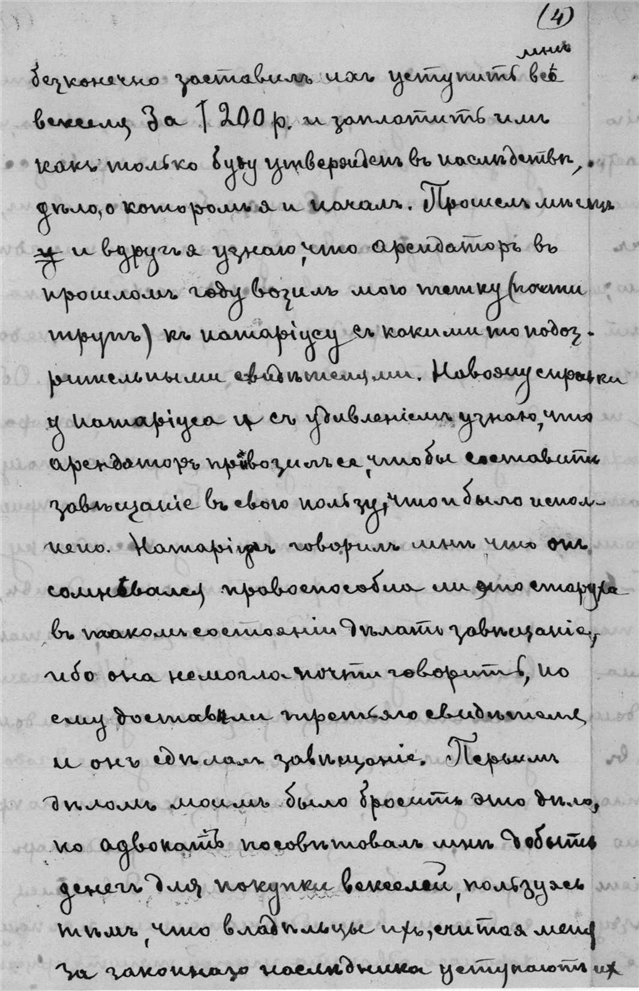 (4)
мнѣ
безконечно заставилъ ихъ уступить всѣ
векселя за 1200 р. и заплатить имъ
какъ только буду утвержденъ въ наслѣдствѣ,
дѣло, о которомъ я и началъ. Прошелъ мѣсяцъ
и вдругъ я узнаю, что арендаторъ въ
прошломъ году возилъ мою тетку (почти
трупъ) къ натаріусу съ какими то подоз-
рительными свидѣтелями. Навожу справки
у натаріуса и съ удивленіемъ узнаю, что
арендаторъ привозилъ ее, чтобы составить
завѣщаніе въ свою пользу, что и было испол-
нено. Натаріусъ говорилъ мнѣ что онъ
сомнѣвался правоспособна ли это старуха
въ такомъ состояніи дѣлать завѣщаніе,
ибо она немогла почти говорить, но
ему доставили третьяго свидѣтеля
и онъ сдѣлалъ завѣщаніе. Первымъ
дѣломъ моимъ было бросить это дѣло,
но адвокатъ посовѣтовалъ мнѣ добыть
денегъ для покупки векселей, пользуясь
тѣмъ, что владѣльцы ихъ, считая меня
за законнаго наслѣдника уступаютъ их